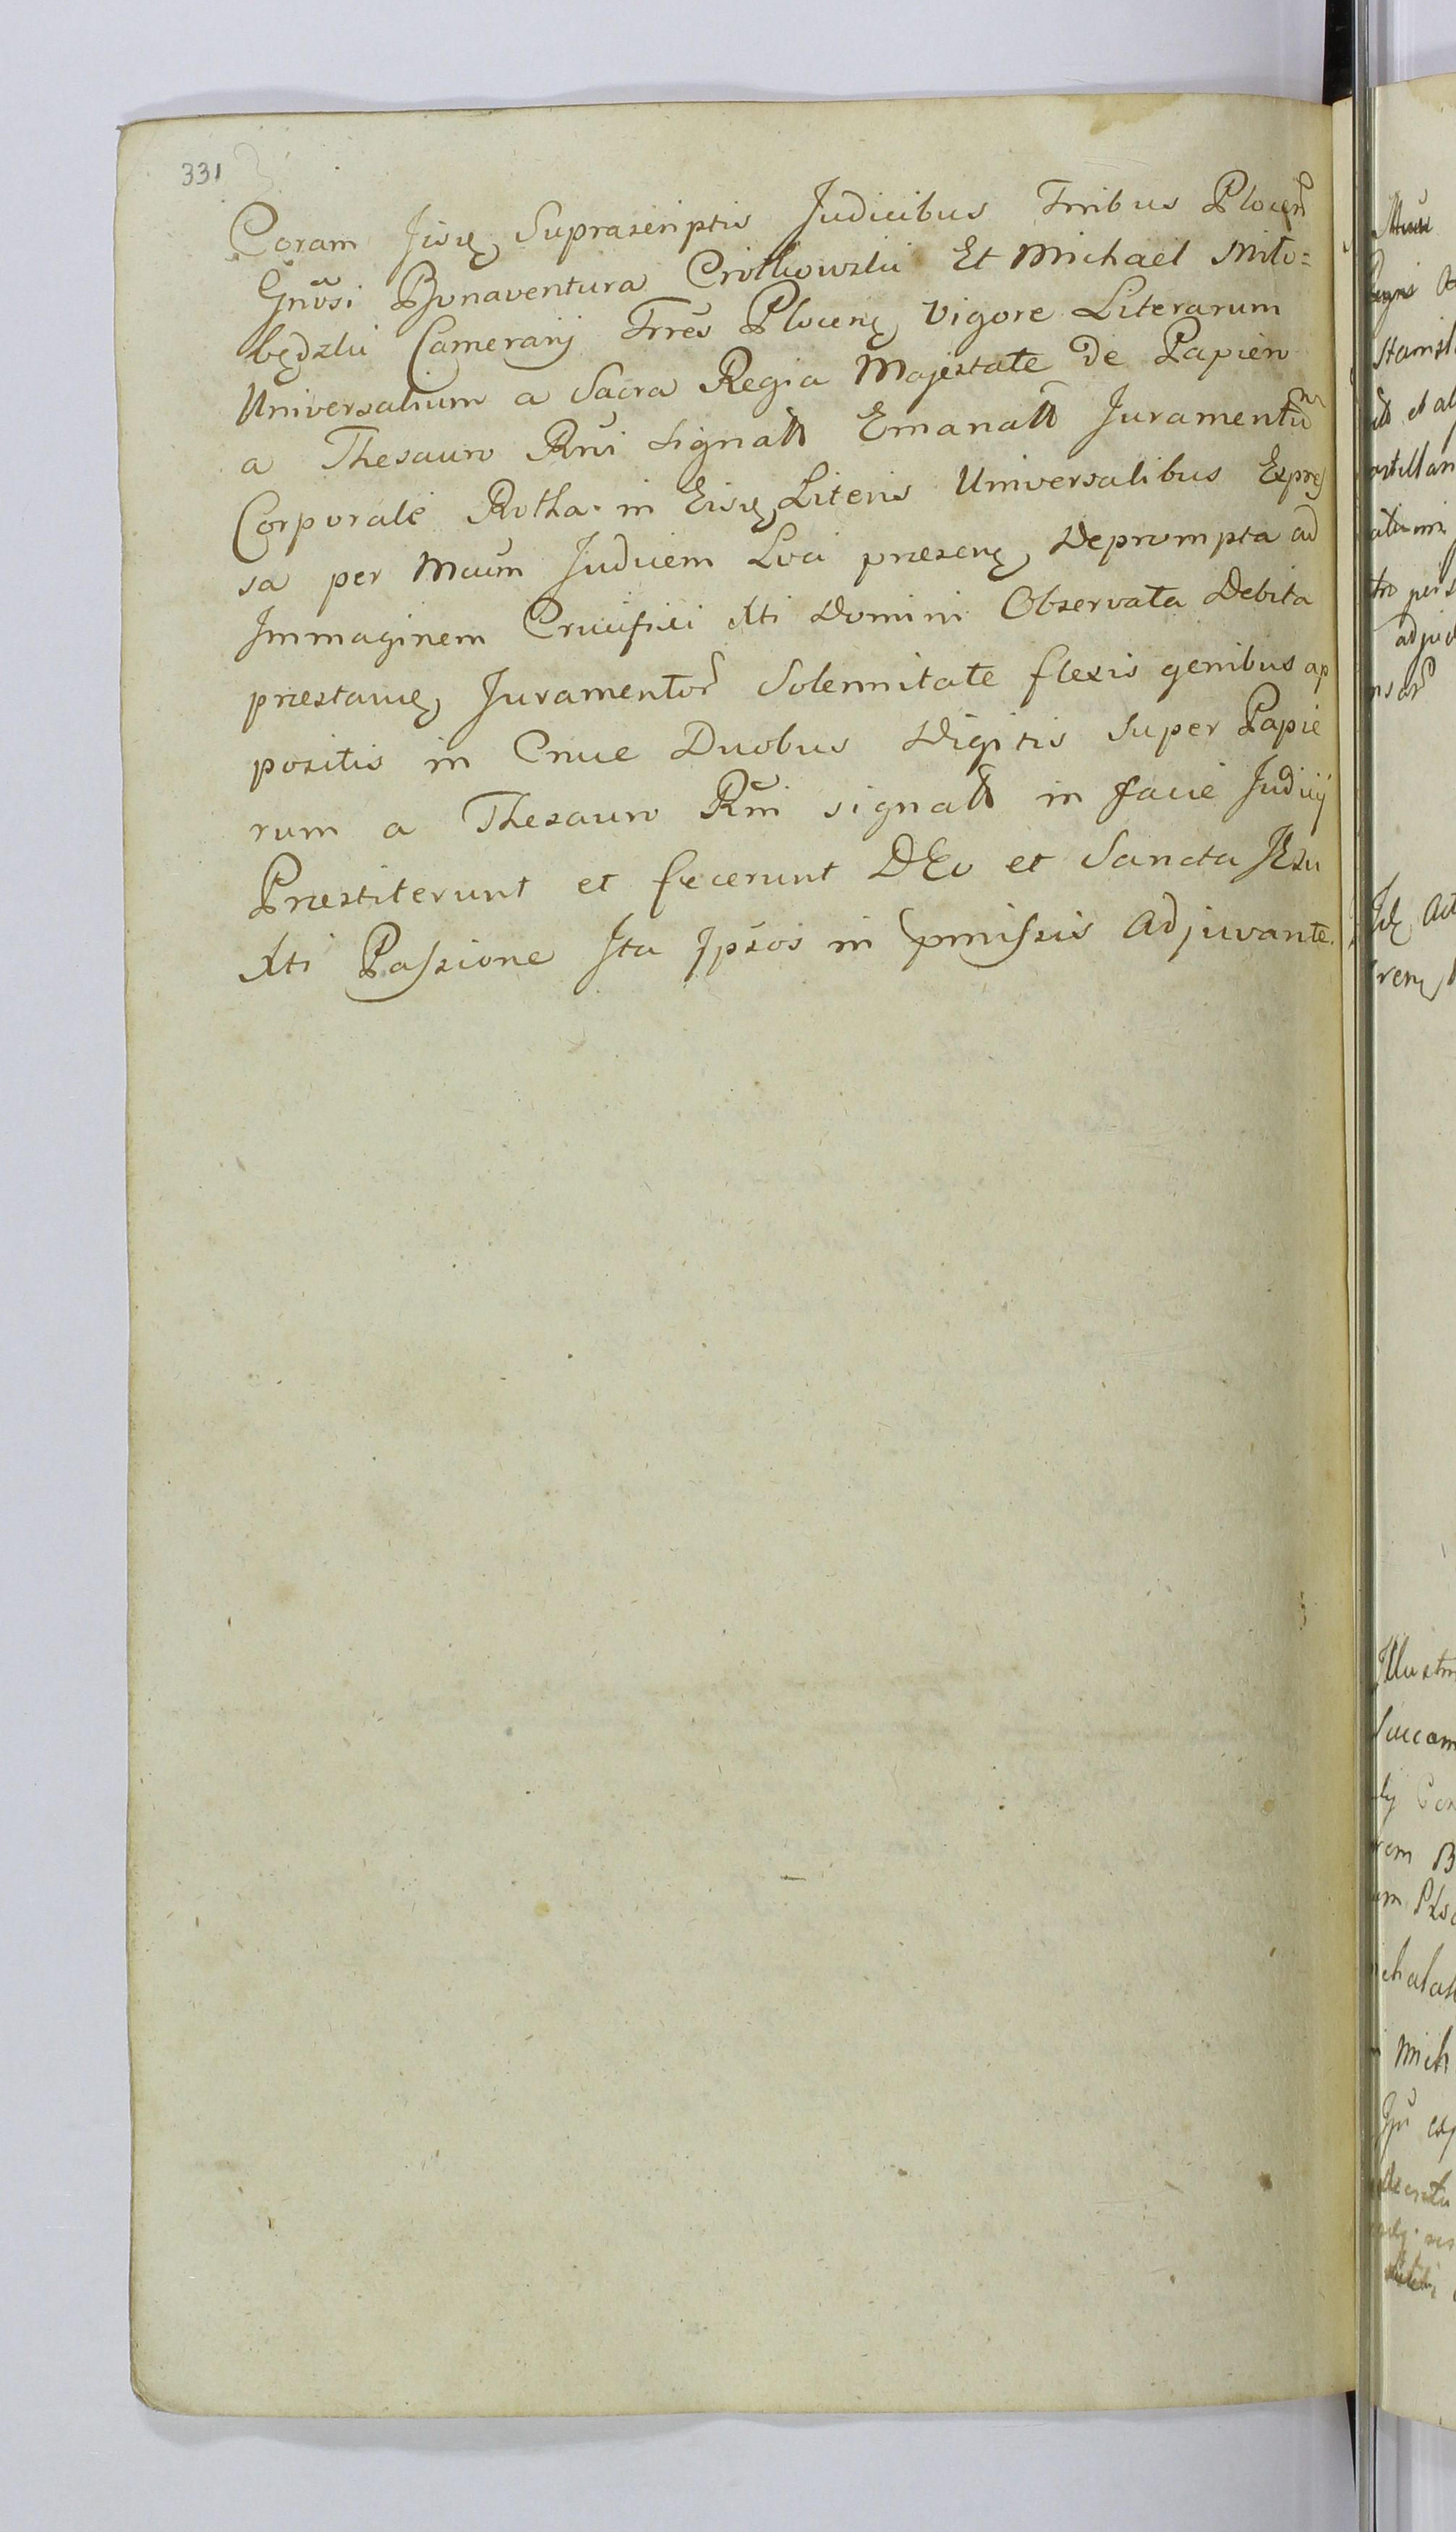 331
Coram Iisdę Suprascriptis Judicibus Trribus Plocen̄
Gnōsi Bonaventura Ciołkowski Et Michael Miło=
będzki Camerarij Trres Plocenę Vigore Literarum
Universalium a Sacra Regia Majestate De Papiero
a Thesauro Rni Signatt Emanatt Juramentū
Corporale Rotha in Eisdę Literis Universalibus Expres
sa per Mcum Judicem Loci præsenę Deprompta ad
Immaginem Crucifixi Xti Domini Observata Debita
præstanę Juramentor Solennitate flexis genibus ap
positis in Cruce Duobus Digitis Super Papie
rum a Thesauro Rni signatt in facie Judicij
Præstiterunt et fecerunt DEo et Sancta JEsu
Xti Passione Ita Ipsos in pmissis Adjuvante.